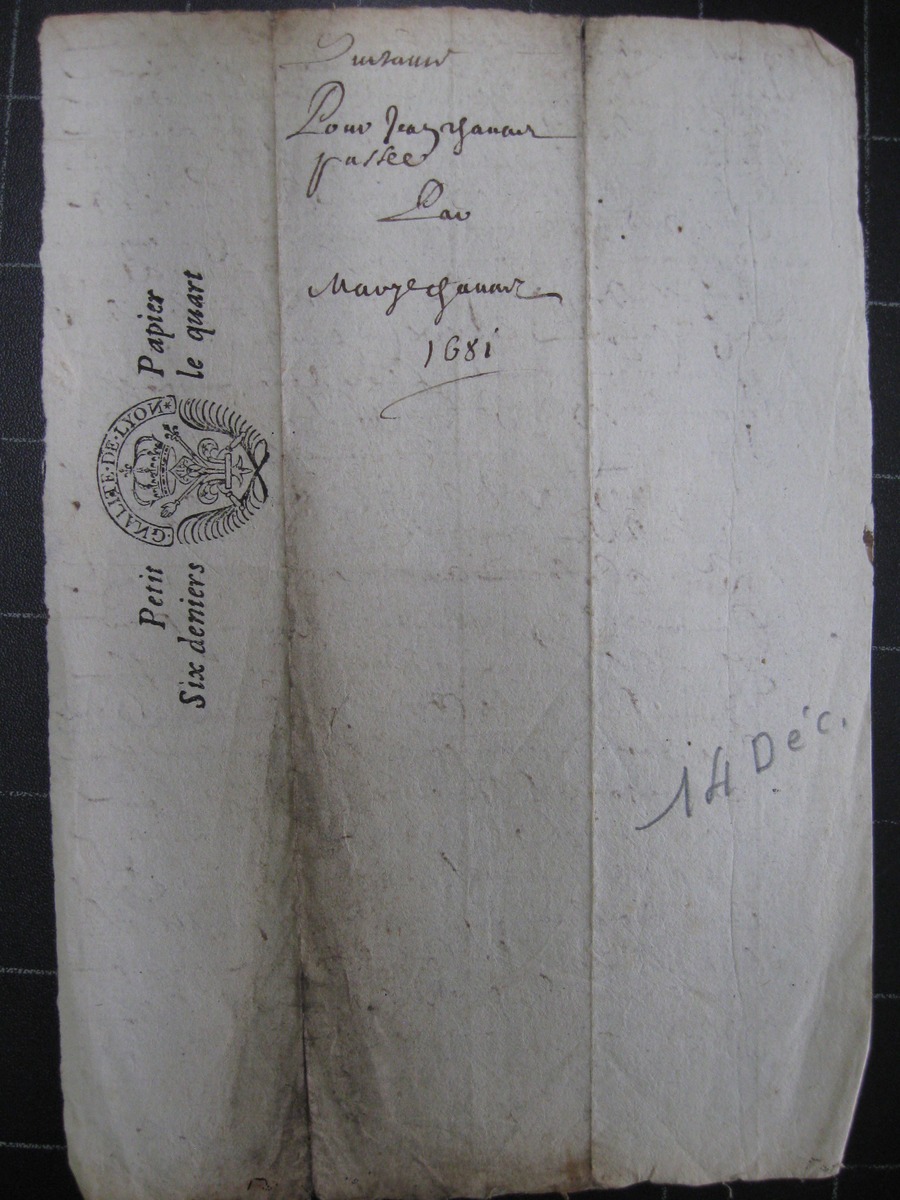 Pour Jean chanar
passée
Par
Marye chanar
1681
Petit Papier
Six deniers le quart
GNALITE·DE·LYON*
14 Déc.